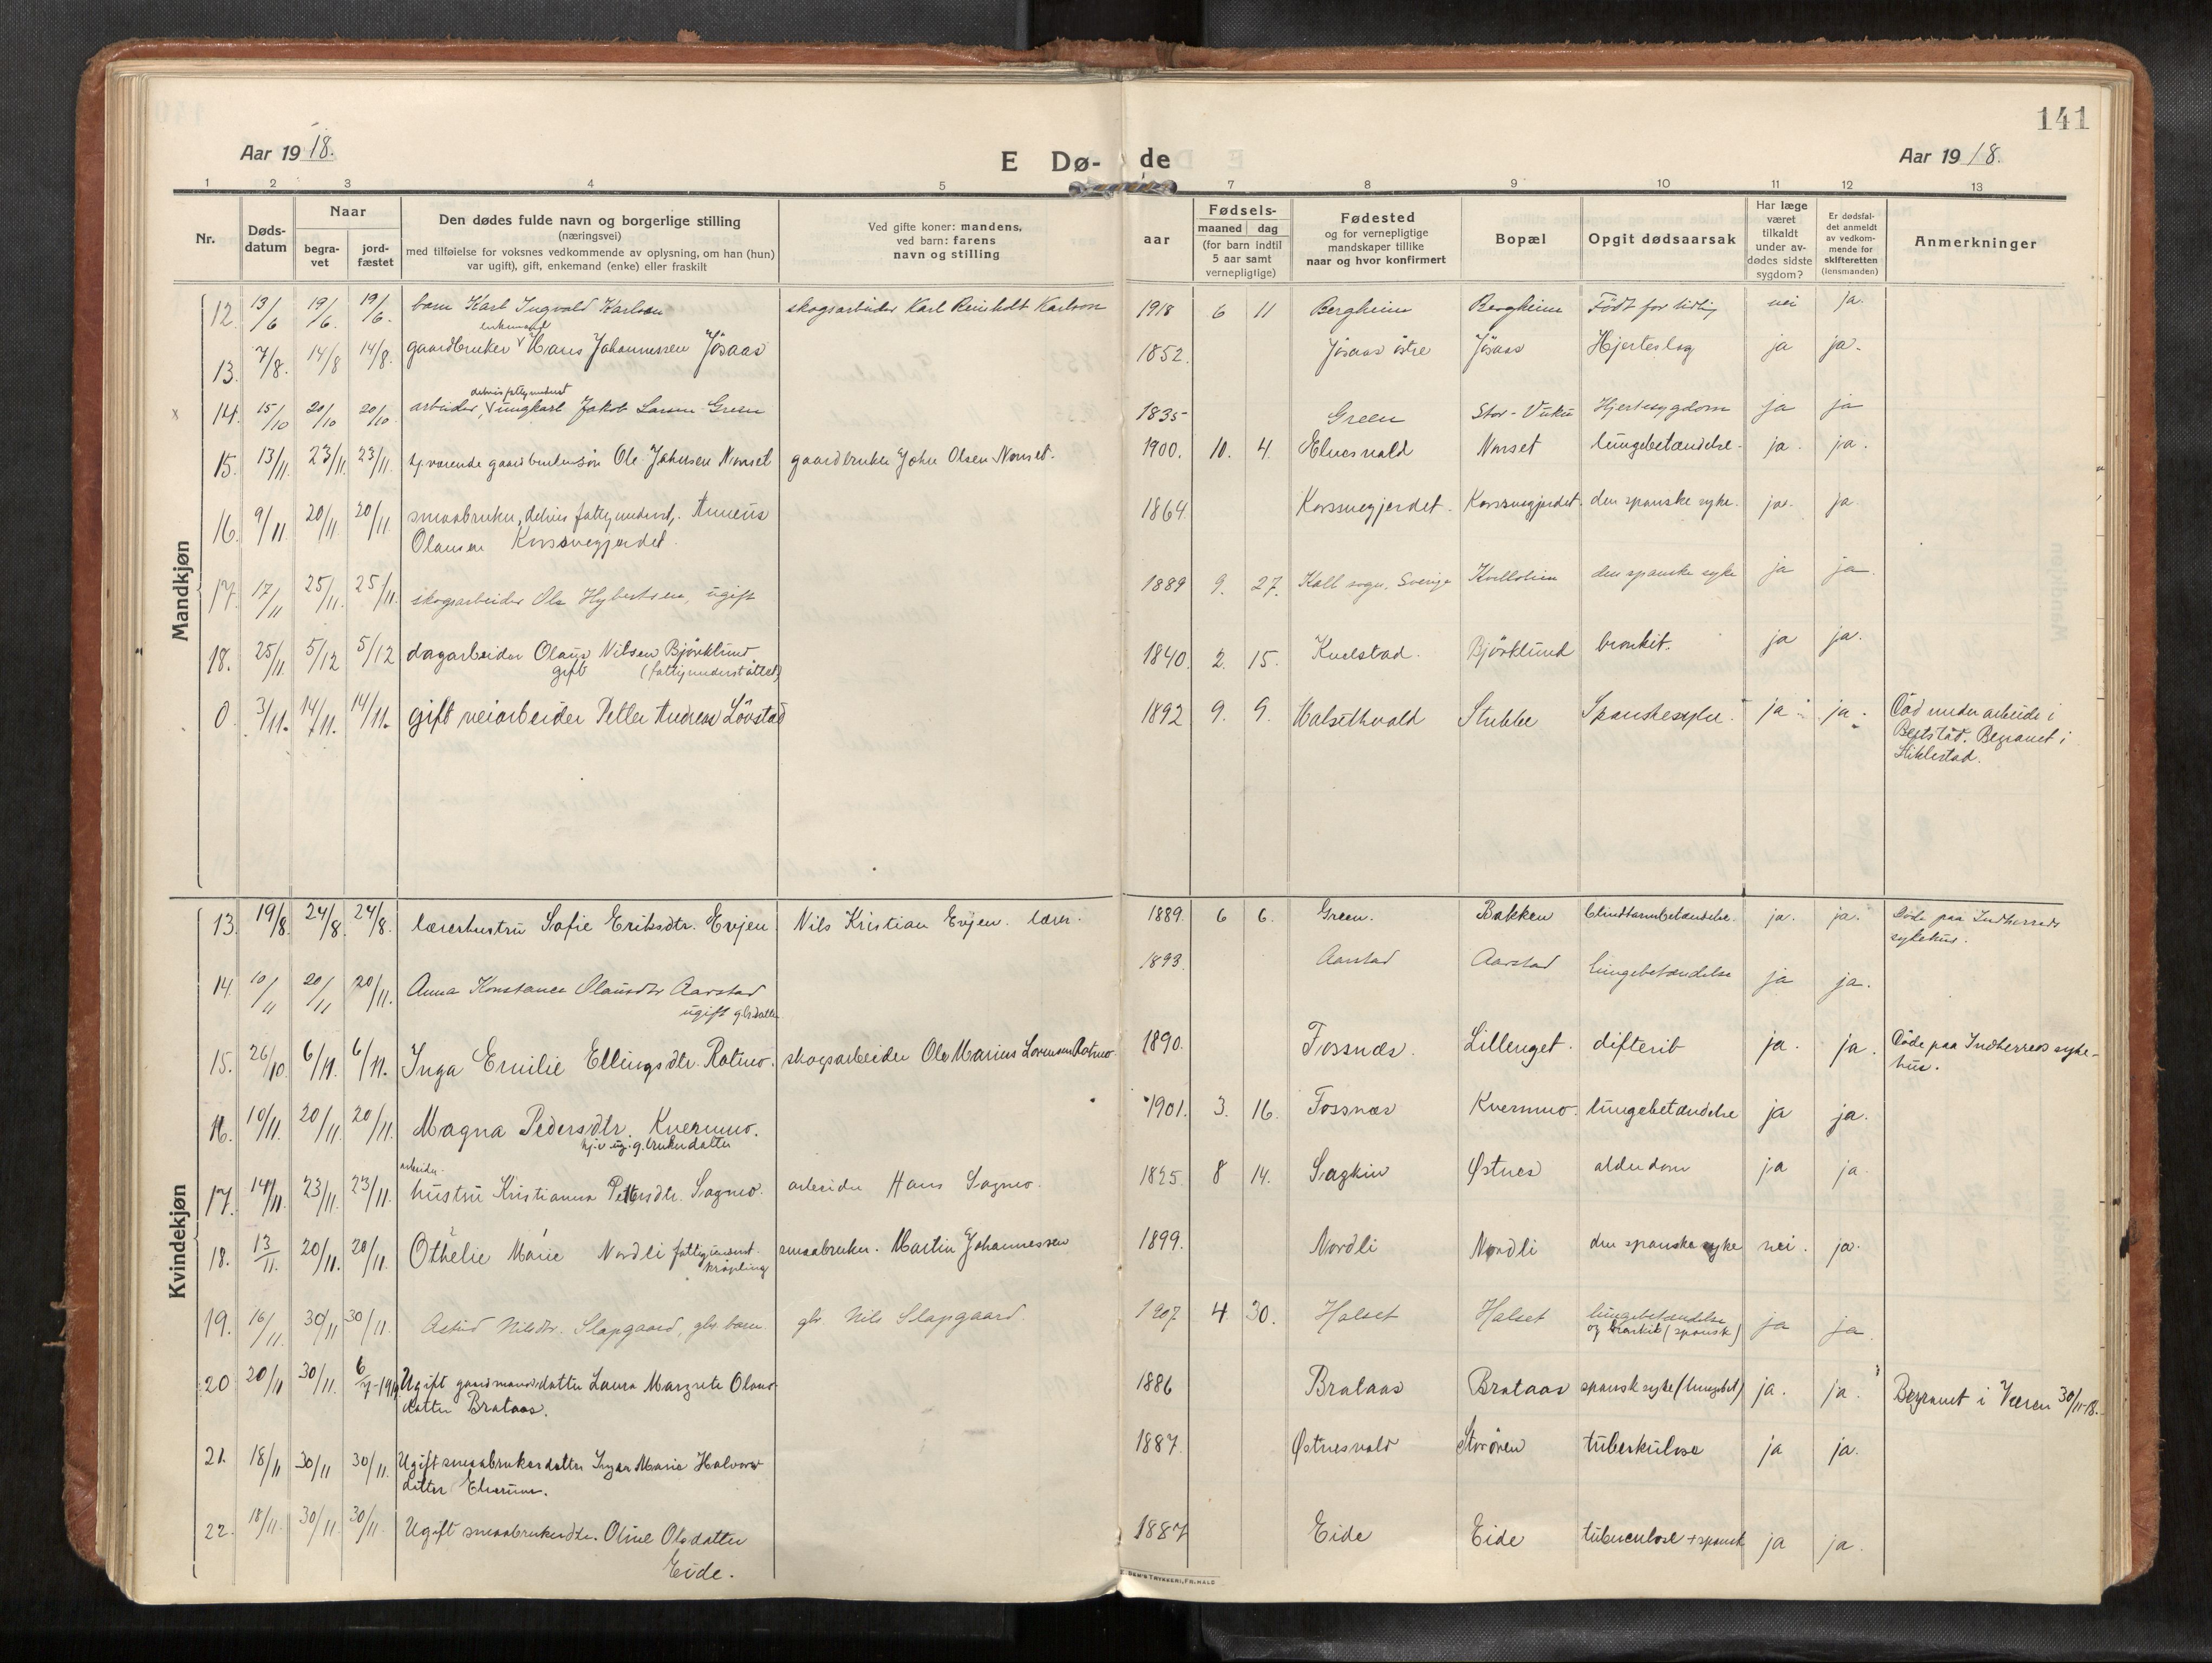 141
Aar 1918.
E Dø- de
Aar 1918.
1 2 3 4 5 7 8 9 10 11 12 13
Nr.
Døds-
datum
Naar
begra-
vet
jord-
fæstet
Den dødes fulde navn og borgerlige stilling
(næringsvei)
med tilføielse for voksnes vedkommende av oplysning, om han (hun)
var ugift), gift, enkemand (enke) eller fraskilt
Ved gifte koner: mandens,
ved barn: farens
navn og stilling
Fødsels-
aar
maaned dag
(for barn indtil
5 aar samt
vernepligtige)
Fødested
og for vernepligtige
mandskaper tillike
naar og hvor konfirmert
Bopæl
Opgit dødsaarsak
Har læge
været
tilkaldt
under av-
dødes sidste
sygdom?
Er dødsfal-
det anmeldt
av vedkom-
mende for
skifteretten
(lensmanden)
Anmerkninger
Mandkjøn
12. 13/6 19/6. 19/6. barn Karl Ingvald Karlsen skogsarbeider Karl Reinholt Karlson 1918 6 11 Bergheim Bergheim Født for tidlig nei ja.
enkemand
13. 7/8. 14/8 14/8. gaardbruker v Hans Johannessen Jösaas 1852. Jösaas östre Jösaas Hjerteslag ja ja.
x 14. 15/10 20/10 20/10. arbeider, v ungkarl Jakob Larsen Green 1835 Green Stor-Vuku Hjertesygdom ja ja
15. 13/11. 23/11. 23/11. hj.værende gaardbrukersön Ole Johnsen Norset gaardbruker John Olsen Norset. 1900. 10. 4. Elnesvald Norset lungebetændelse. ja. ja.
16. 9/11 20/11. 20/11 smaabruker, delvis fattigunderst,. Anneus
Olausen Korsvegjerdet. 1864. Korsvegjerdet. Korsvegjerdet. den spanske syke. ja. ja.
17. 17/11 25/11. 25/11. skogsarbeider Ole Hybertsen, ugift 1889 9. 27. Kall sogn, Sverige den spanske syke ja ja.
18. 25/11. 5/12 5/12 dagarbeider Olaus Nilsen Björklund
gift (fattigunderstøttet) 1840. 2. 15. Kvelstad. Björklund bronkit. ja ja.
0. 3/11. 14/11. 14/11. gift veiarbeider Petter Andreas Lövstad 1892 9. 9. Halsethvald Stubbe Spanskesyke. ja. ja. Död under arbeide i
Begravet i
Stiklestad.
Kvindekjøn
13. 19/8. 24/8. 24/8. lærerhustru Sofie Eriksdtr. Evjen Nils Kristian Evjen. lærer. 1889. 6 6. Green. Bakken blindtarmbetændelse. ja. ja. Døde paa Indherreds
sykehus.
14. 10/11 20/11 20/11. Anna Konstance Olausdtr Aarstad
ugift gbrdatter 1893. Aarstad Aarstad lungebetændelse ja ja.
15. 26/10. 6/11. 6/11. Inga Emilie Ellingsdtr. Rotmo. skogsarbeider Ole Marius Lorensen Rotmo. 1890. Fossnæs. Lillenget. difterit ja. ja. Døde paa Indherreds syke-
hus.
16. 10/11. 20/11. 20/11. Magna Pedersdtr. Kvernmo.
hj.v ug. g.brukerdatter 1901. 3. 16. Fossnæs Kvernmo. lungebetændelse ja ja.
arbeider-
17. 14/11. 23/11. 23/11. hustru Kristianna Pettersdtr. Sagmo. arbeider Hans Sagmo. 1825. 8 14. Østnes alderdom ja ja.
18. 13/11. 20/11. 20/11. Othelie Marie Nordli fattigunderst.
krøpling smaabruker. Martin Johannessen 1899. Nordli Nordli den spanske syke nei. ja.
19. 16/11. 30/11 30/11. Astrid Nilsdtr. Slapgaard, gbr. barn. gbr. Nils Slapgaard. 1907 4 30. Halset Halset lungebetændelse
og bronkit (spansk) ja ja.
20 20/11 30/11. 6/7-1919 Ugift gaardmandsdatter Laura Margrete Olaus-
datter Brataas. 1886 Brataas Brataas spansk syke (lungebet) ja. ja. Begravet i Væren 30/11-18.
21. 18/11 30/11 30/11. Ugift smaabrukerdatter Inger Marie Halvors-
datter 1887. Østnesvald Storøren tuberkulose ja ja.
22. 18/11. 30/11. 30/11. Ugift smaabrukerdtr. Oline Olsdatter
Eide. 1887 Eide Eide tuberculose + spansk ja ja.
TRYKKERI, FR.HALD